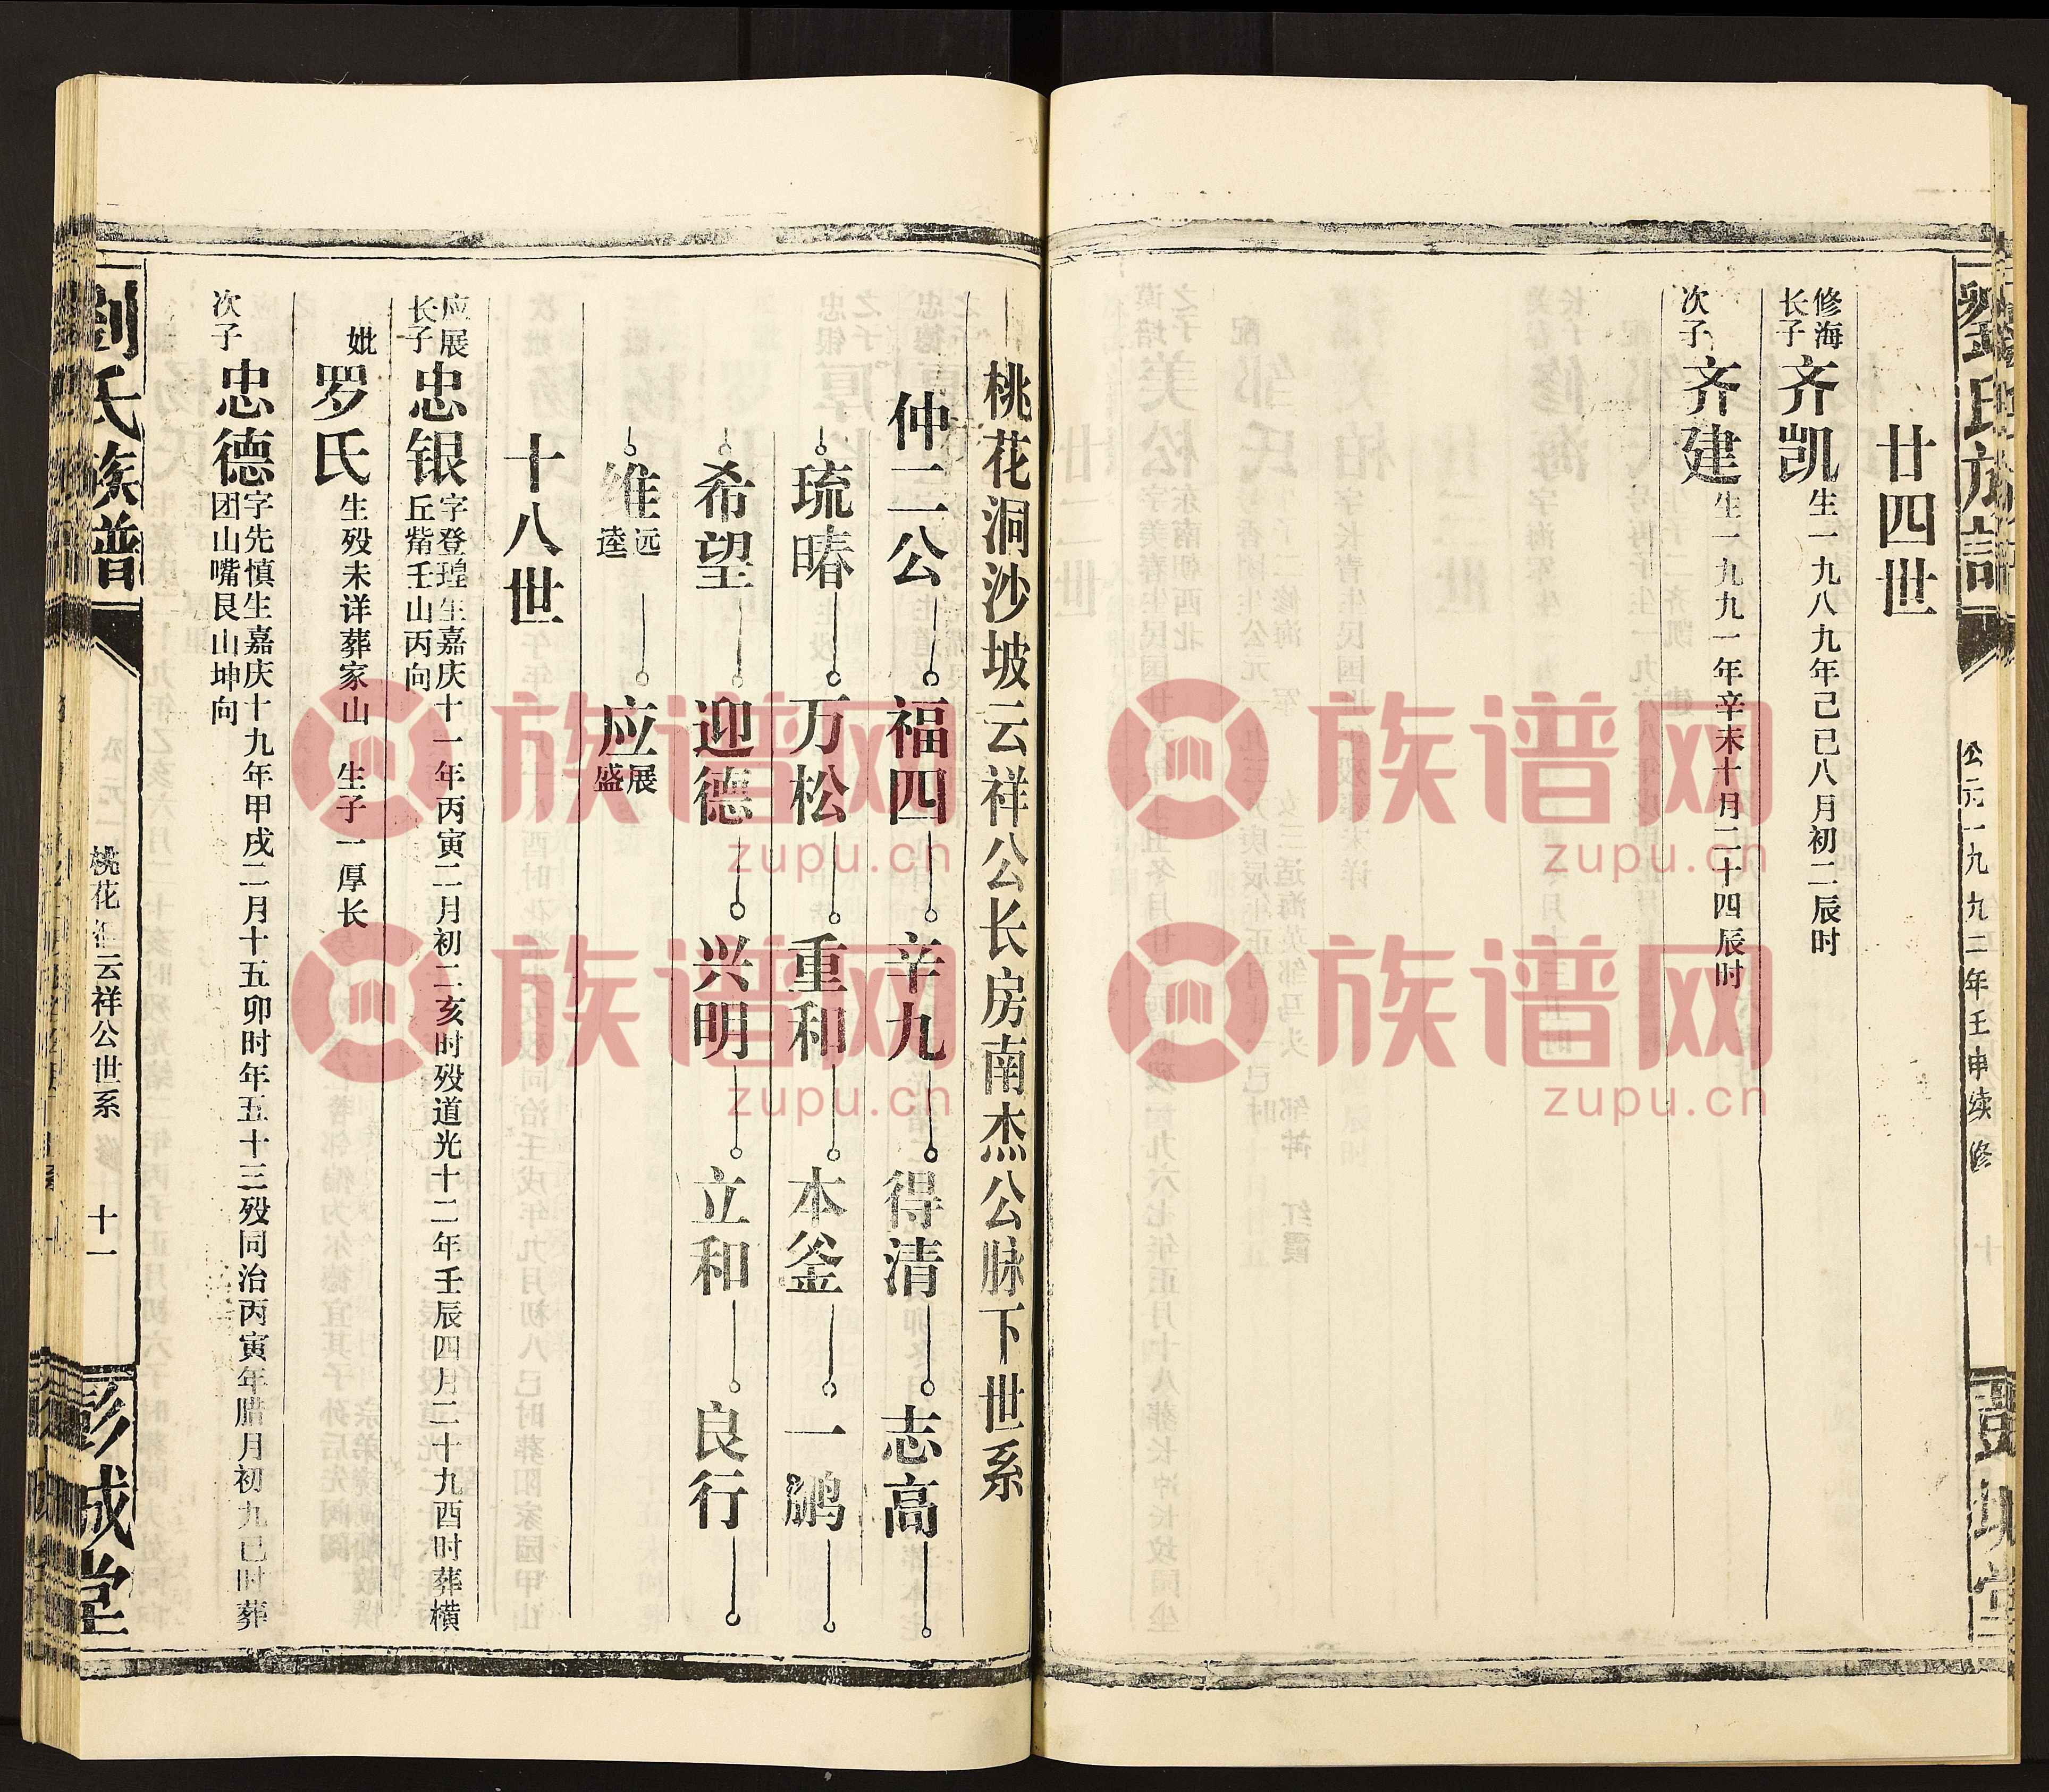 劉氏族譜
公元一九九二年壬申续修
廿四世
修海长子
齐凯
生一九八九年己巳八月初二辰时
次子
齐建
生一九九一年辛未十月二十四辰时
桃花洞沙坡云祥公长房南杰公脉下世系
仲二公 福四 辛九 得清 志高
琉暙 万松 重和 本釜 一鹏
希望 迎德 兴明 立和 良行
维远逵 应展盛
十八世
应展长子
忠银
字登瑝生嘉庆十一年丙寅二月初二亥时殁道光十二年壬辰四月二十九酉时葬横
丘觜壬山丙向
妣
罗氏
生殁未详葬家山 生子一厚长
次子
忠德
字先慎生嘉庆十九年甲戌二月十五卯时年五十三殁同治丙寅年腊月初九巳时葬
团山嘴艮山坤向
劉氏族譜
桃花 云祥公世系
十一
彭城堂
族谱网
zupu.cn
族谱网
zupu.cn
族谱网
zupu.cn
族谱网
zupu.cn